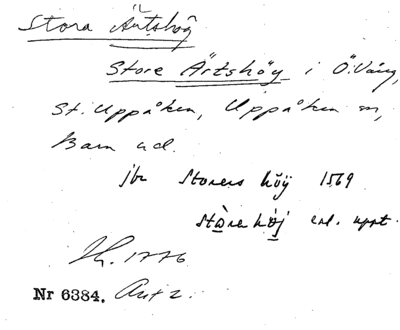 Stora Ärtshög
Store Ärtshöy i Ö. Vång,
St. Uppåkra, Uppåkra sn,
Bara hd.
jbr Storers höÿ 1569
stɑ̀re høj enl. uppt.
Sk. 1776
Nr 6384. Avt 2.